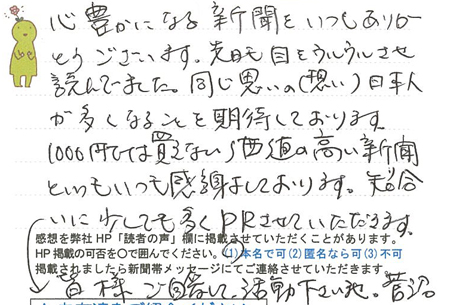 心豊かになる新聞をいつもありが
とうございます。先日も目をウルウルさせ
読んでいました。同じ思いの(想い)日本人
が多くなることを期待しております。
1000円では買えない価値の高い新聞
といつもいつも感謝しております。知合
いに少しでも多くPRさせていただきます。
感想を弊社HP「読者の声」欄に掲載させていただくことがあります。
HP掲載の可否を○で囲んでください。(1)本名で可(2)匿名なら可(3)不可
掲載されましたら新聞帯メッセージにてご連絡させていただきます。
皆様ご自愛して活動下さい。